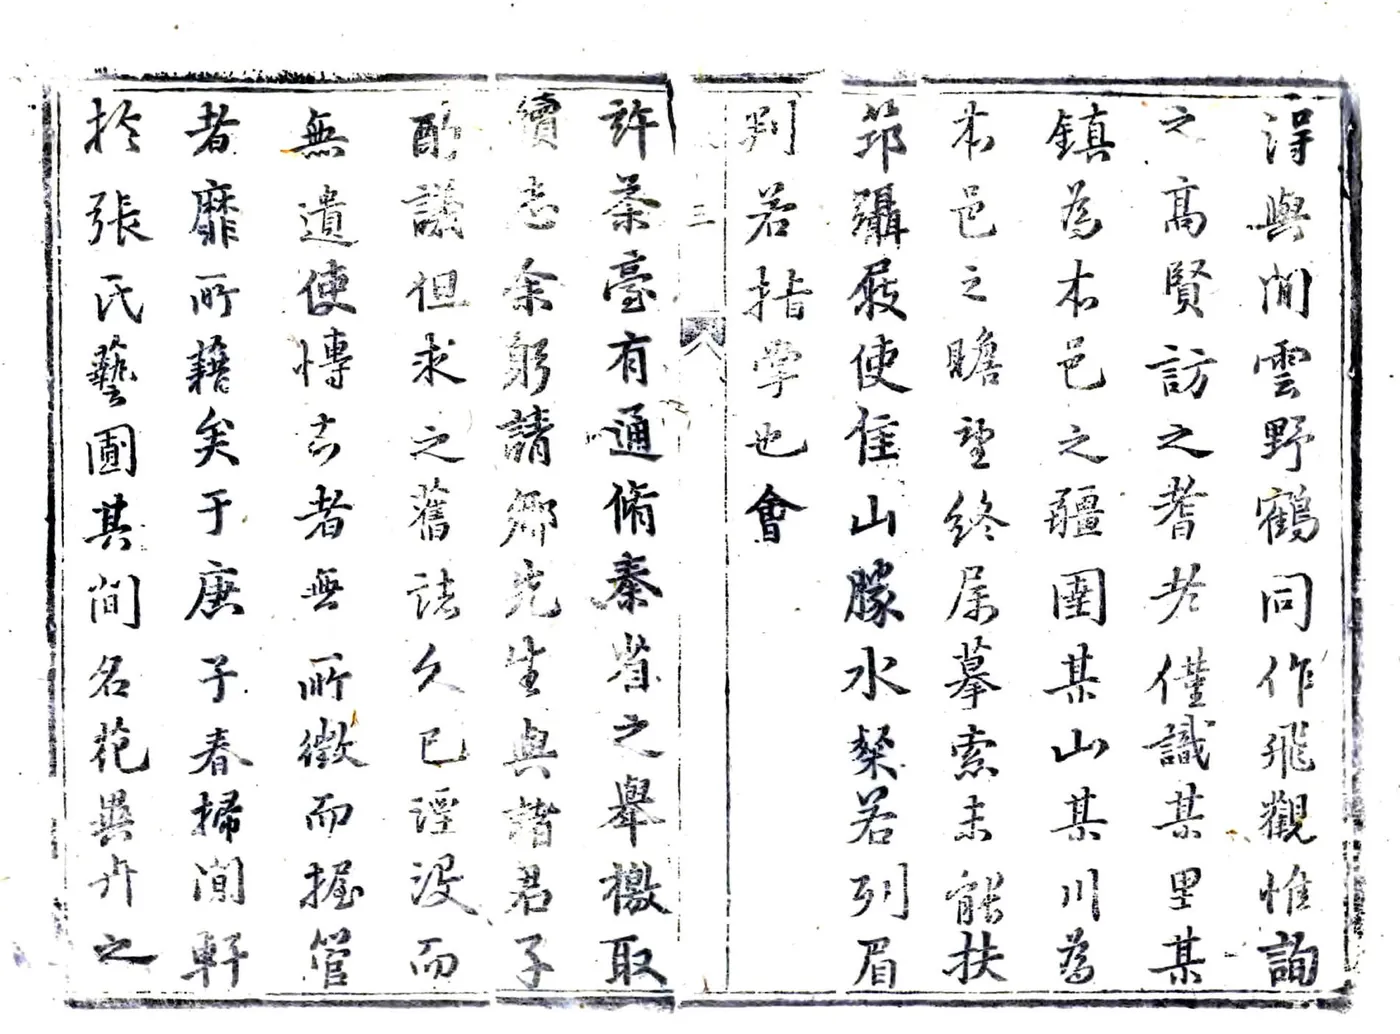 得與閒雲野鶴同作飛觀惟詢
之高賢訪之耆老僅識某里某
鎮為本邑之疆圉某山某川為
本邑之瞻望終屬摹索未能扶
筇躡屐使佳山勝水粲若列眉
判若指掌也會
三
許茶臺有通脩秦省之舉檄取
續志余躬請鄉先生與諧君子
酌議但求之舊誌久已湮沒而
無遺使博古者無所徵而握管
者靡所藉矣于庚子春掃閒軒
於張氏藝圃其間名花異卉之